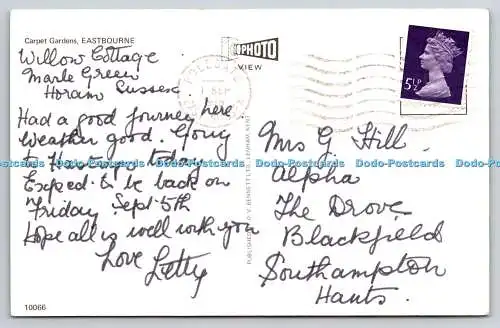 Carpet Gardens, EASTBOURNE
Willow Cottage
Marle Green
Horam Sussex.
Had a good journey here
Weather good. Going
to today
Exped. to be back on
Friday Sept. 5th
Hope all is well with you
Love Letty
10066
PHOTO
VIEW
SEP
PUBLISHED BY D.V. BENNETT LTD.,
5½P
Mrs G Hill.
Alpha
The Drove
Blackfield
Southampton
Hants.
Dodo-Postcards Dodo-Postcards Dodo-Postcards Dodo-Postcards Dodo-Postcards